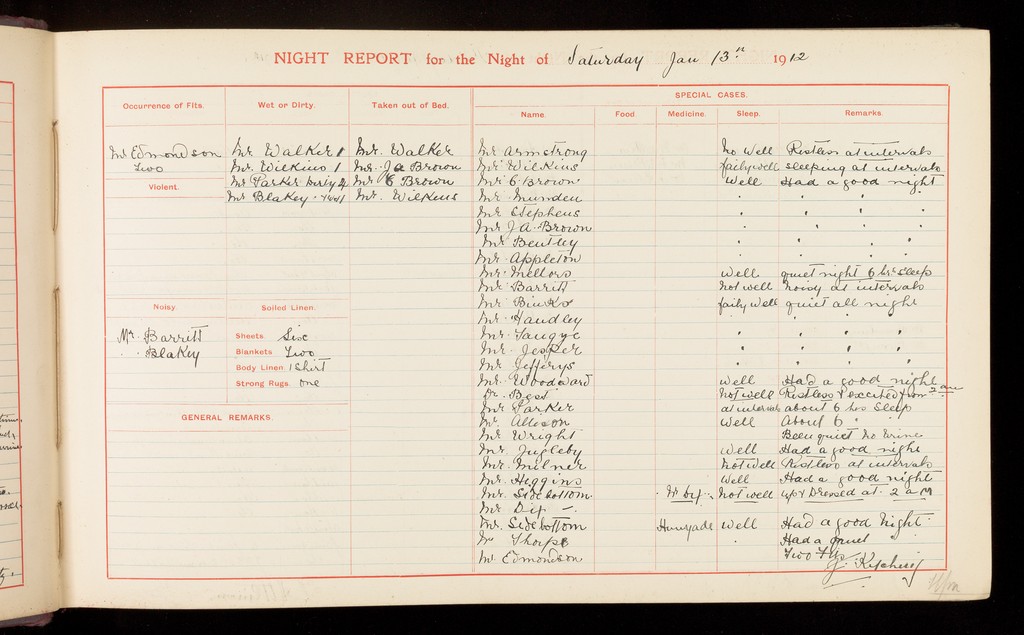 NIGHT REPORT for the Night of Saturday Jan 13th 1912
Occurrence of Fits.
Mr Edmondson
Two
Violent.
Noisy.
Mr. Barritt
" " Blakey
Wet or Dirty.
Mr Walker 1
Mr. Wilkins 1
Mr Parker Dirty 2
Mr Blakey
Soiled Linen.
Sheets Six
Blankets Two
Body Linen 1 Shirt
Strong Rugs one
Taken out of Bed.
Mr. Walker
Mr. J A Brown
Mr C Brown
Mr. Wilkins
GENERAL REMARKS.
SPECIAL CASES.
Name. Food Medicine. Sleep. Remarks.
Mr Armstrong No Well Restless at intervals
Mr Wilkins faily well sleeping at intervals
Mr C Brown Well Had a good night
Mr Munden " " " "
Mr Stephens " " " "
Mr J A Brown " " " "
Mr Bentley " " " "
Mr Appleton
Mr Mellors well quiet night 6 hrs sleep
Mr Barritt not well noisy at intervals
Mr Binks faily well quiet all night
Mr Handley
Mr " " " "
Mr Jesper " " " "
Mr Jefferys " " " "
Mr Woodward well Had a good night
Dr. Best not well Restless & excited from 2 am
Mr Parker at intervals about 6 hrs Sleep
Mr. Allison well About 6 "
Mr Wright Been quiet no
Mr Ingleby well Had a good night
Mr. Milner not well Restless at intervals
Mr. Higgins well Had a good night
Mr. Sidebottom not well up & Dressed at 2 a M
Mr
Mr. Sidebottom Hunyadi well Had a good night
Mr Thorpe " Had a quiet
Mr Edmondson Two Fits
J. Kitching